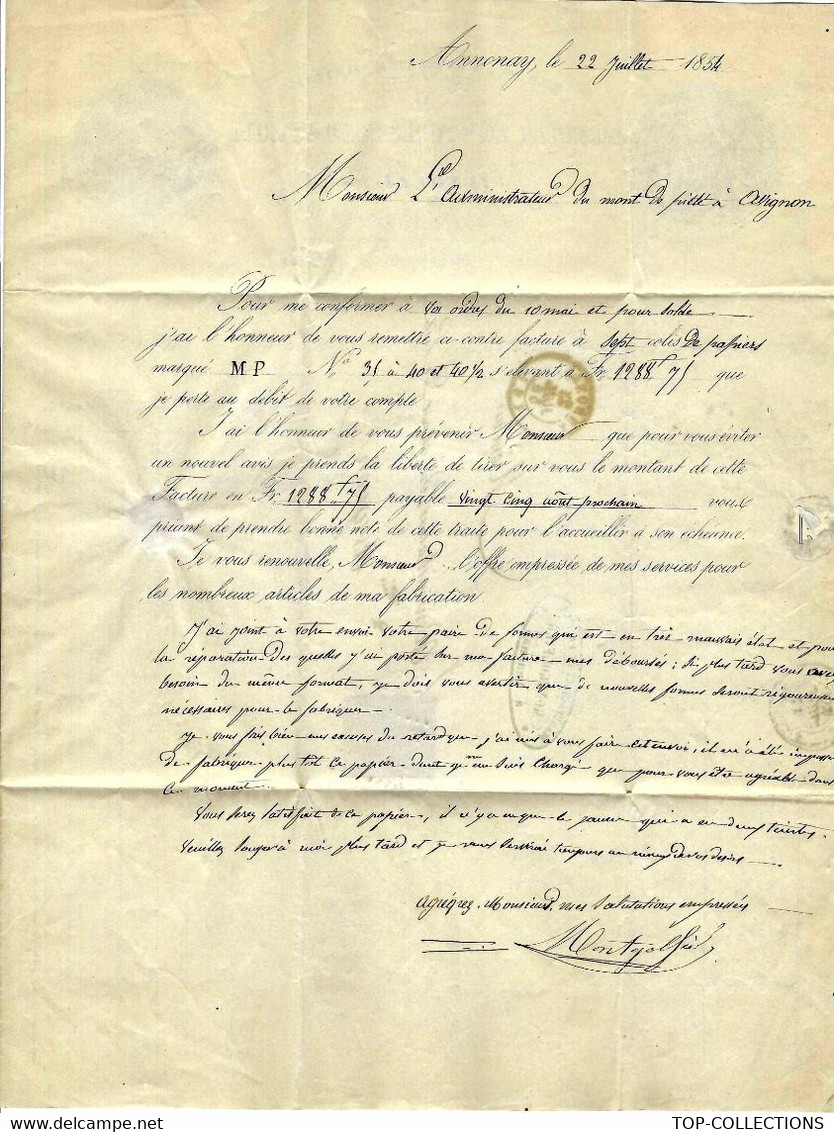 Annonay, le 22 Juillet 1854
Monsieur L'administrateur du mont de piété à Avignon
Pour me conformer à vos ordres du 10 mai et pour solde
j'ai l'honneur de vous remettre ci-contre facture à sept colis de papiers
marqué MP Nos 35 à 40 et 40 1/2 s'élevant à Fr. 1288 f 75 que
je porte au débit de votre compte
J'ai l'honneur de vous prévenir Monsieur que pour vous éviter
un nouvel avis je prends la liberté de tirer sur vous le montant de cette
Facture en Fr. 1288 f 75 payable vingt cinq août prochain vous
priant de prendre bonne note de cette traite pour l'accueillir à son échéance.
Je vous renouvelle, Monsieur, l'offre empressée de mes services pour
les nombreux articles de ma fabrication
J'ai joint à votre envoi votre paire de formes qui est en très mauvais état et pour
la réparation des quelles j'ai porté sur ma facture mes déboursés; si plus tard vous avez
besoin du même format, je dois vous avertir que de nouvelles formes seront rigoureusement
nécessaires pour le fabriquer
Je vous fais bien mes excuses du retard que j'ai mis à vous faire cet envoi, il m'a été
de fabriquer plus tôt ce papier dont je me suis chargé que pour vous être agréable dans
ce moment.
Vous serez satisfait de ce papier, il n'y a que le jaune qui a eu deux teintes.
Veuillez songer à moi plus tard et je vous servirai toujours au mieux de vos désirs
Agréez, Monsieur, mes salutations empressées
Montgolfier
TOP-COLLECTIONS